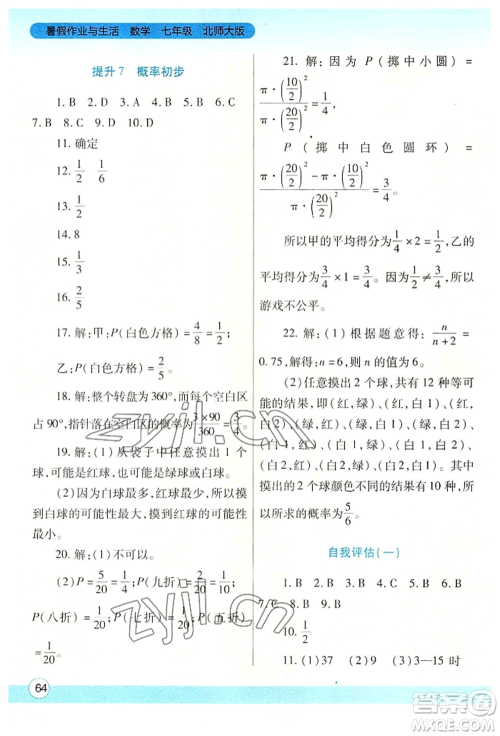 暑假作业与生活 数学 七年级 北师大版
提升7 概率初步
1. B 2. D 3. A 4. C 5. B 6. C
7. B 8. C 9. D 10. D
11. 确定
12. 1/2 1/6
13. 1/2
14. 8
15. 1/3
16. 2/5
17. 解：甲：P(白色方格)=4/8=1/2；
乙：P(白色方格)=2/5.
18. 解：整个转盘为360°，而每个空白区
占90°，指针落在空白区的概率为(3×90)/360=3/4.
19. 解：(1)从袋子中任意摸出1个
球，可能是红球，也可能是绿球或白球.
(2)因为白球最多，红球最少，所以摸
到白球的可能性最大，摸到红球的可能性
最小.
20. 解：(1)不可以.
(2)P=5/20=1/4；P(九折)=2/20=1/10；
P(八折)=1/20；P(七折)=1/20；P(五折)
=1/20.
21. 解：因为 P(掷中小圆)=
π·(10/2)²/π·(20/2)²=1/4，
P(掷中白色圆环)=
π·(20/2)²-π·(10/2)²/π·(20/2)²=3/4，
所以甲的平均得分为1/4×2=1/2，乙的
平均得分为3/4×1=3/4. 因为1/2≠3/4，所以
游戏不公平.
22. 解：(1)根据题意得：n/(n+2)=
0.75，解得：n=6，则n的值为6.
(2)任意摸出2个球，共有12种等可
能的结果，即(红，绿)、(红，白1)、(红，
白2)、(绿，红)、(绿，白1)、(绿，白2)、
(白1，红)、(白1，绿)、(白1，白2)、
(白2，红)、(白2，绿)、(白2，白1)，
其中摸出的2个球颜色不同的结果有10种，所
以所求的概率为5/6
自我评估(一)
1. B 2. C 3. D 4. D 5. B 6. C
7. C 8. B 9. B 10. B
11. (1)37 (2)9 (3)3—15 时
64
zyjl.cn
zyjl.cn
答案圈
MXQE.COM